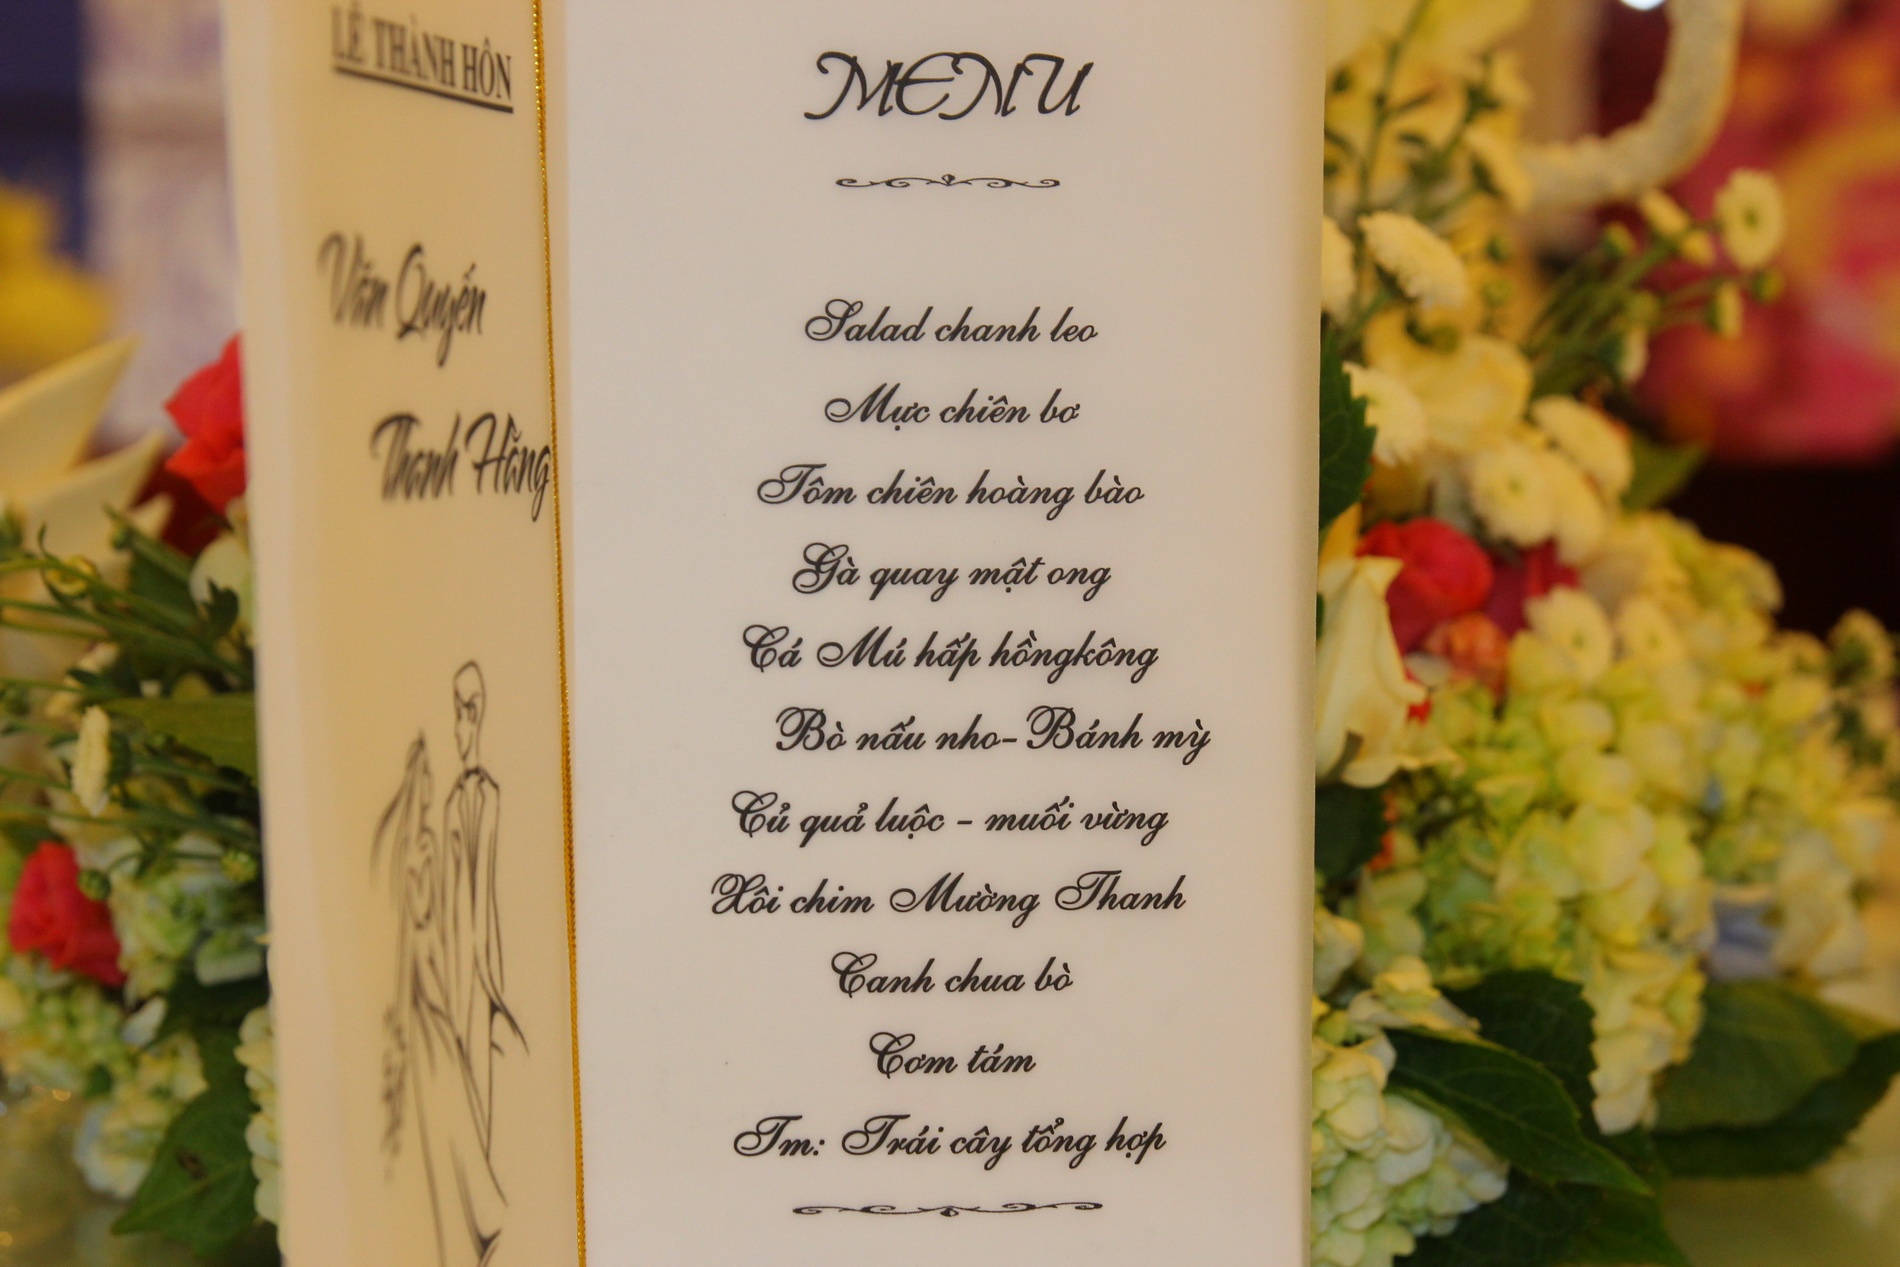 LỄ THÀNH HÔN
Văn Quyến
Thanh Hằng
MENU
Salad chanh leo
Mực chiên bơ
Tôm chiên hoàng bào
Gà quay mật ong
Cá Mú hấp hồngkông
Bò nấu nho - Bánh mỳ
Củ quả luộc - muối vừng
Xôi chim Mường Thanh
Canh chua bò
Cơm tám
Tm: Trái cây tổng hợp